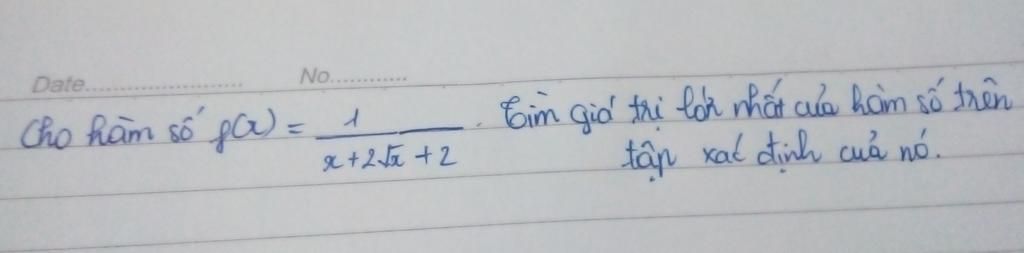 Date.......................... No............
Cho hàm số f(x) = 1/(x+2√x+2). Tìm giá trị lớn nhất của hàm số trên
tập xác định của nó.